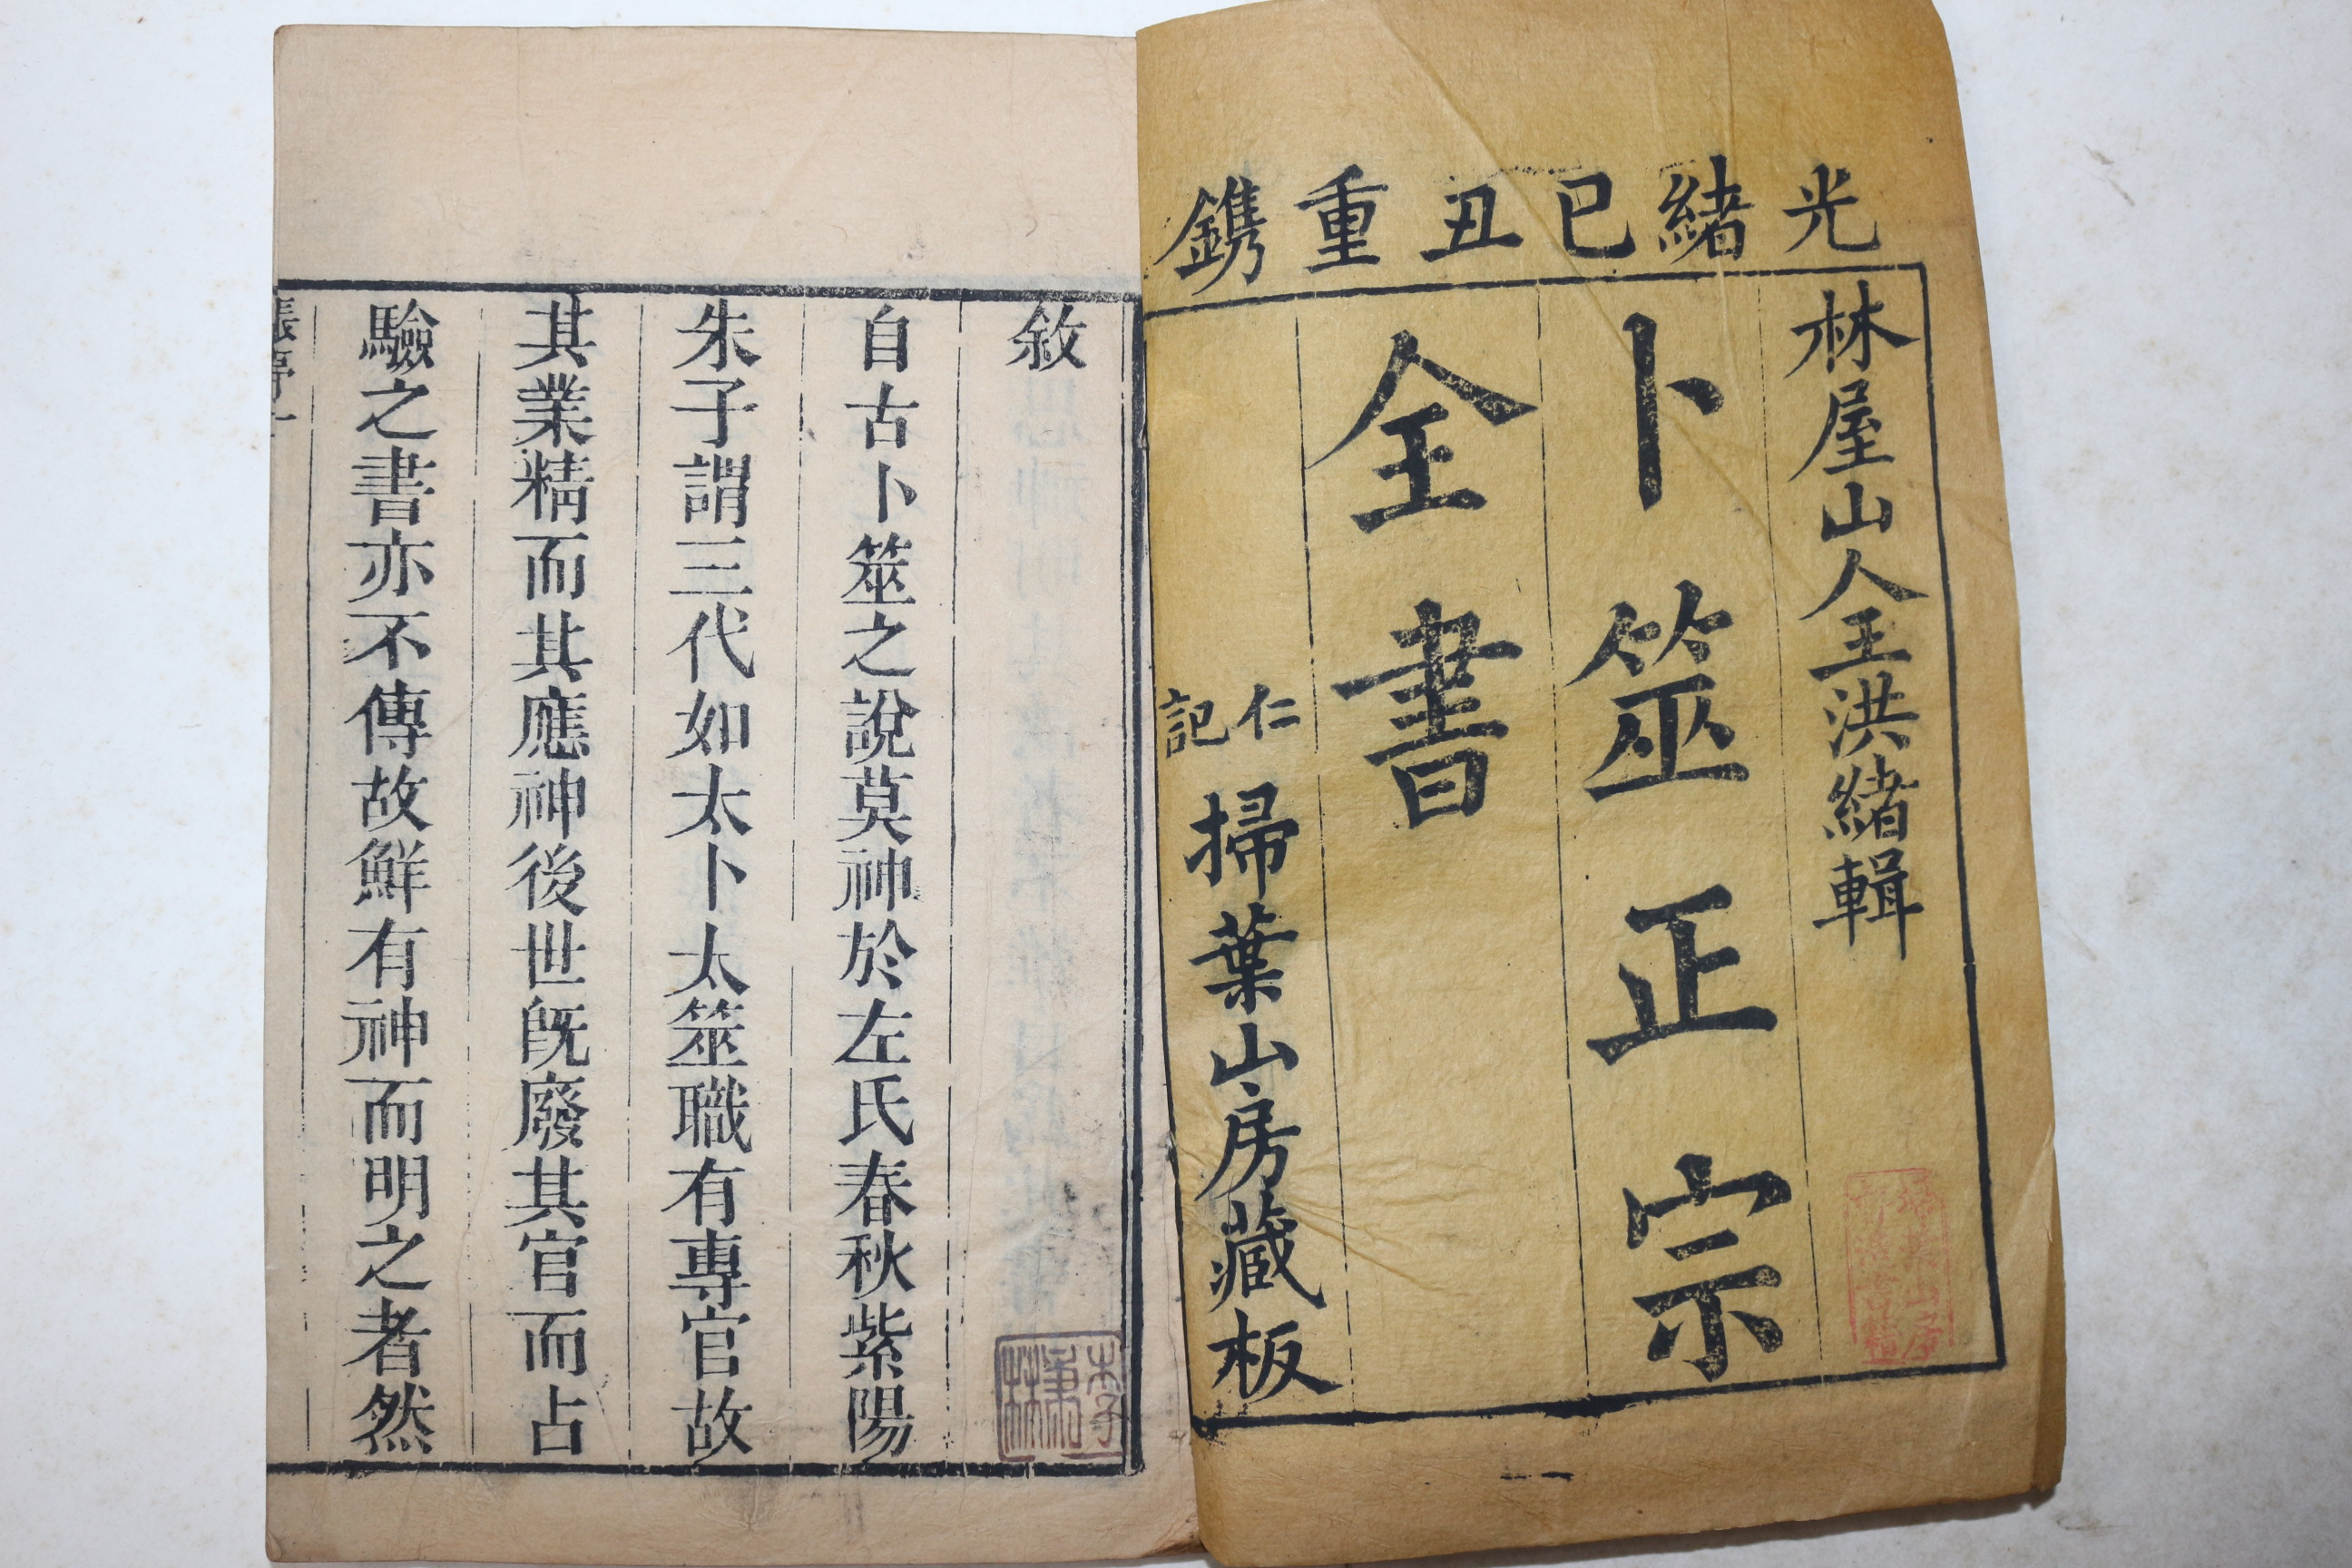 光緒己丑重鐫
林屋山人王洪緒輯
卜筮正宗
全書
仁記
掃葉山房藏板
敘
自古卜筮之說莫神於左氏春秋紫陽
朱子謂三代如太卜太筮職有專官故
其業精而其應神後世旣廢其官而占
驗之書亦不傳故鮮有神而明之者然